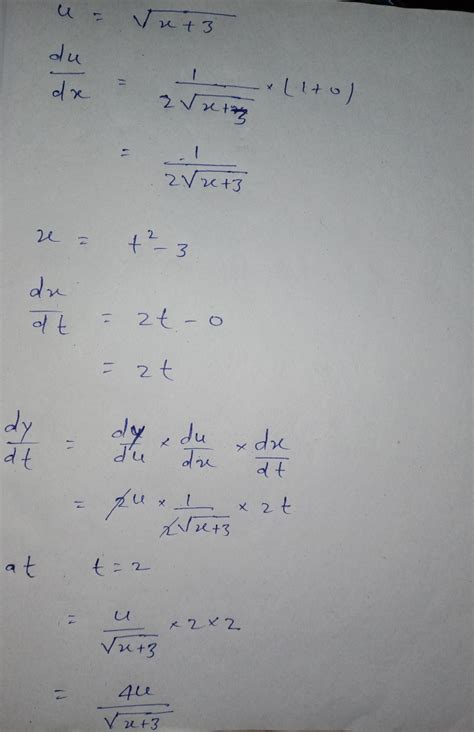 u = √(x+3)
du/dx = 1/(2√(x+3)) × (1+0)
= 1/(2√(x+3))
x = t² - 3
dx/dt = 2t - 0
= 2t
dy/dt = dy/du × du/dx × dx/dt
= 2u × 1/(2√(x+3)) × 2t
at t = 2
= u/√(x+3) × 2 × 2
= 4u/√(x+3)